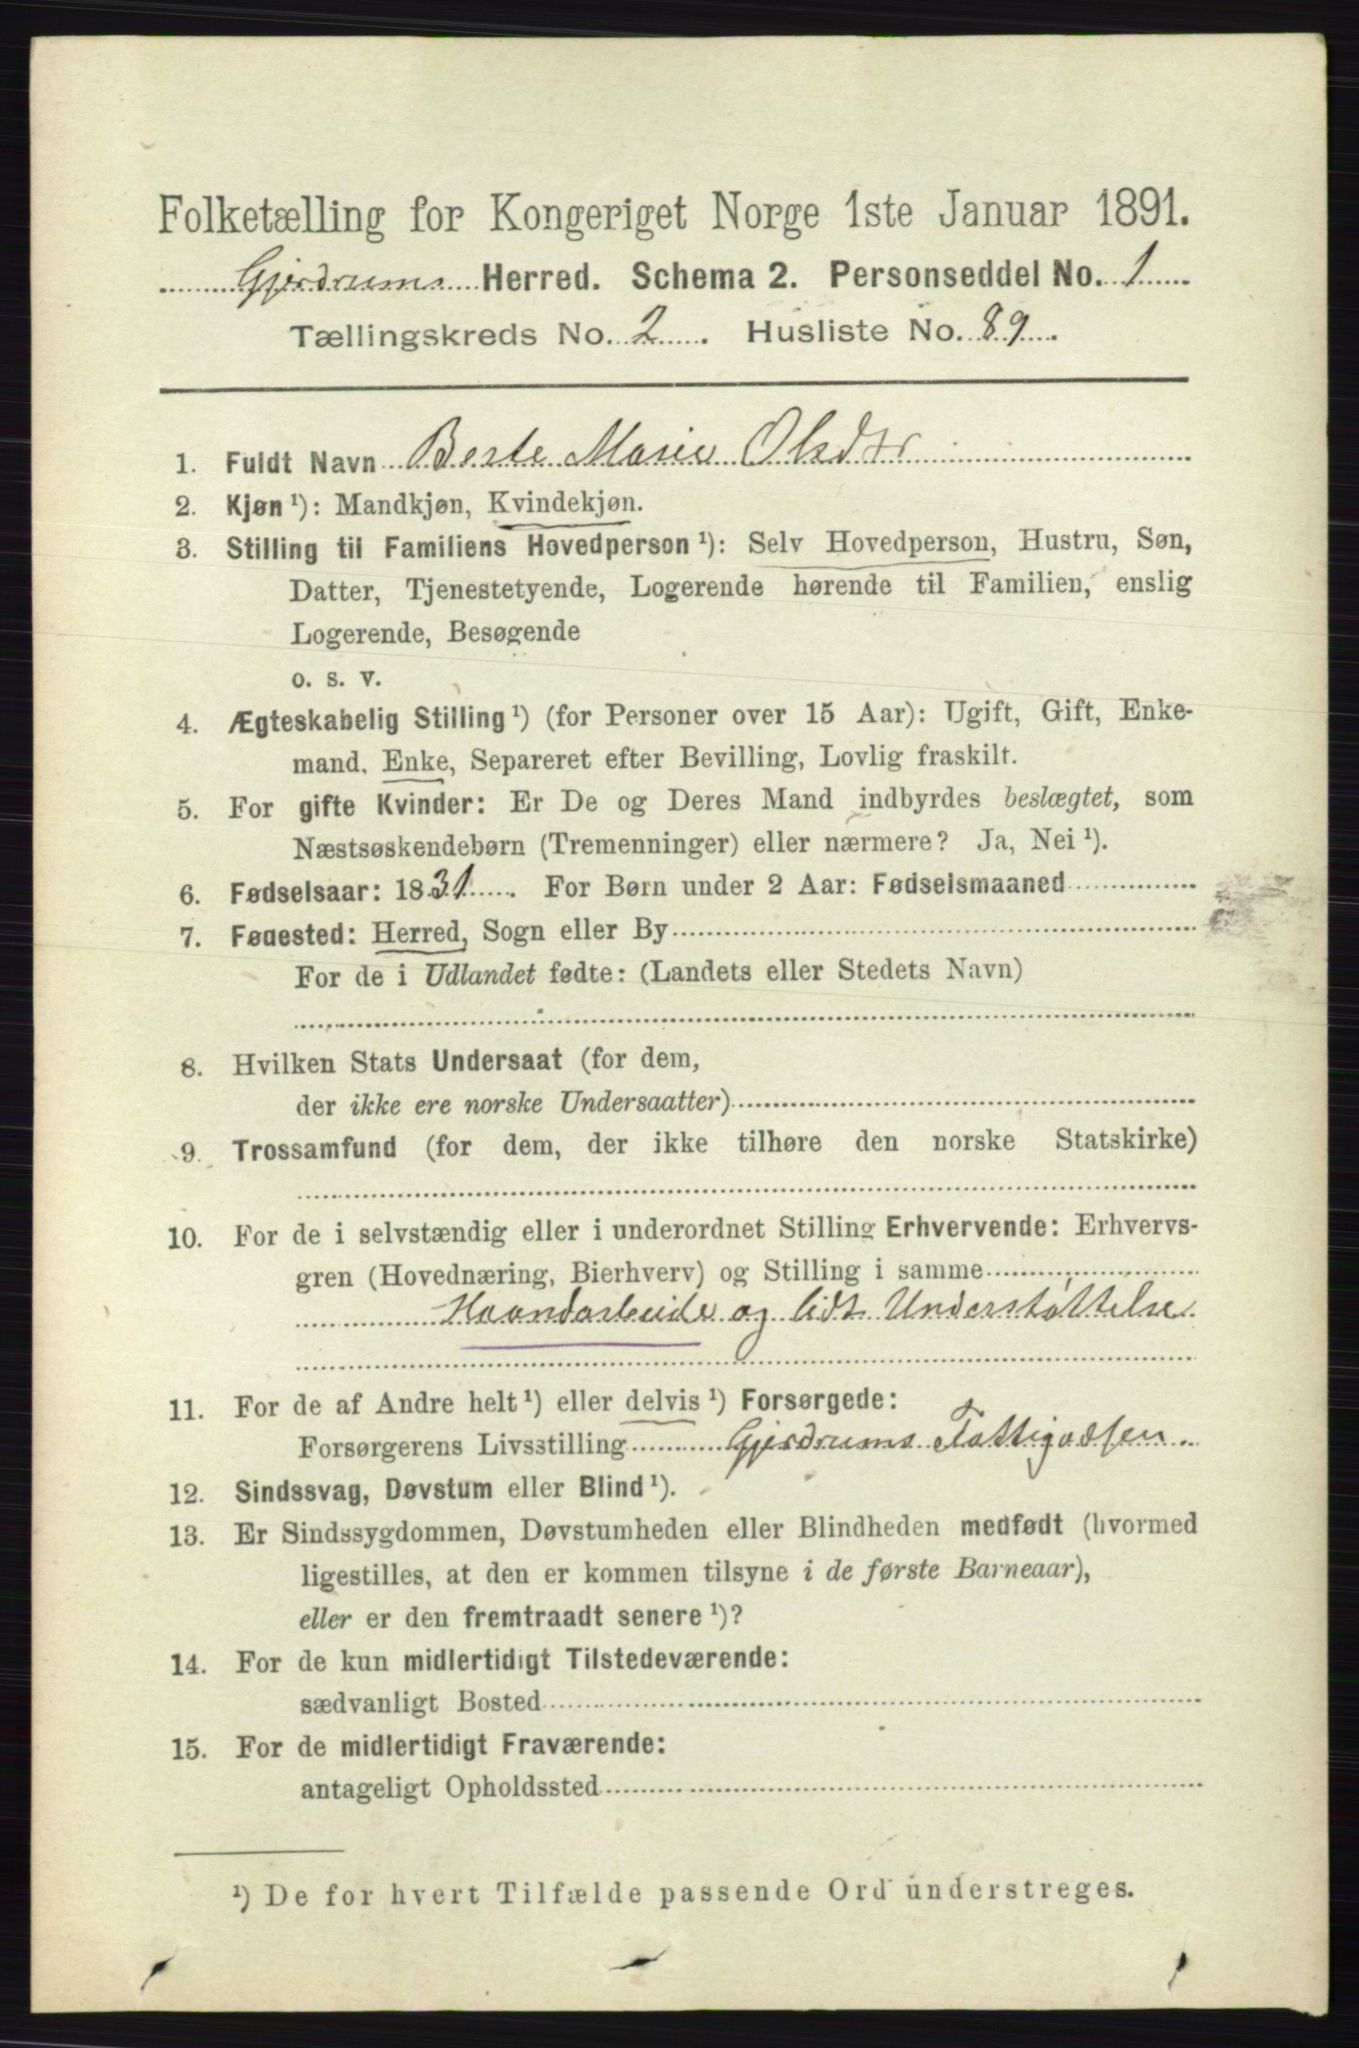 Folketælling for Kongeriget Norge 1ste Januar 1891.
Gjerdrums Herred. Schema 2. Personseddel No. 1
Tællingskreds No. 2. Husliste No. 89.
1. Fuldt Navn Berte Marie Olsdtr
2. Kjøn ¹): Mandkjøn, Kvindekjøn.
3. Stilling til Familiens Hovedperson ¹): Selv Hovedperson, Hustru, Søn,
Datter, Tjenestetyende, Logerende hørende til Familien, enslig
Logerende, Besøgende
o. s. v.
4. Ægteskabelig Stilling ¹) (for Personer over 15 Aar): Ugift, Gift, Enke-
mand, Enke, Separeret efter Bevilling, Lovlig fraskilt.
5. For gifte Kvinder: Er De og Deres Mand indbyrdes beslægtet, som
Næstsøskendebørn (Tremenninger) eller nærmere? Ja, Nei ¹).
6. Fødselsaar: 1831. For Børn under 2 Aar: Fødselsmaaned
7. Fødested: Herred, Sogn eller By
For de i Udlandet fødte: (Landets eller Stedets Navn)
8. Hvilken Stats Undersaat (for dem,
der ikke ere norske Undersaatter)
9. Trossamfund (for dem, der ikke tilhøre den norske Statskirke)
10. For de i selvstændig eller i underordnet Stilling Erhvervende: Erhvervs-
gren (Hovednæring, Bierhverv) og Stilling i samme
Haandarbeide og lidt Understøttelse
11. For de af Andre helt ¹) eller delvis ¹) Forsørgede:
Forsørgerens Livsstilling Gjerdrums Fattigvæsen.
12. Sindssvag, Døvstum eller Blind ¹).
13. Er Sindssygdommen, Døvstumheden eller Blindheden medfødt (hvormed
ligestilles, at den er kommen tilsyne i de første Barneaar),
eller er den fremtraadt senere ¹)?
14. For de kun midlertidigt Tilstedeværende:
sædvanligt Bosted
15. For de midlertidigt Fraværende:
antageligt Opholdssted
¹) De for hvert Tilfælde passende Ord understreges.